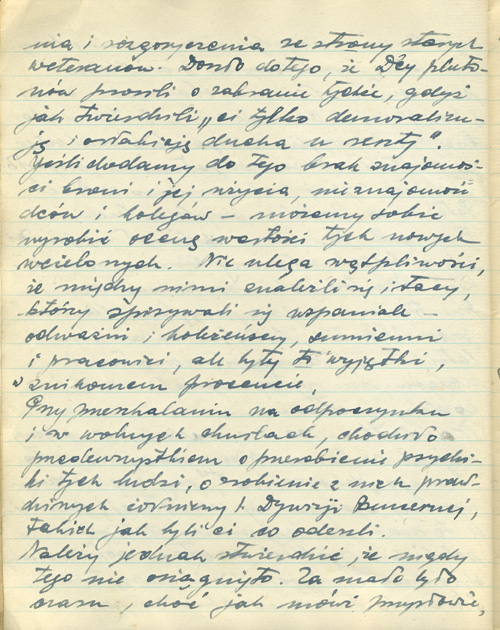 nia i rozgoryczenia ze strony starych
weteranów. Doszło do tego, że D-cy pluto-
nów prosili o zabranie tychże, gdyż
jak twierdzili „ci tylko demoralizu-
ją i osłabiają ducha u reszty".
Jeśli dodamy do tego brak znajomoś-
ci broni i jej użycia, nieznajomość
dców i kolegów – możemy sobie
wyrobić ocenę wartości tych nowych
wcielonych. Nie ulega wątpliwości,
że między nimi znaleźli się i tacy,
którzy spisywali się wspaniale –
odważni i koleżeńscy, sumienni
i pracowici, ale były to wyjątki,
w znikomem procencie,
Przy na odpoczynku
i w wolnych chwilach, chodziło
przedewszystkiem o przerobienie psychi-
ki tych ludzi, o zrobienie z nich praw-
dziwych żołnierzy 1. Dywizji Pancernej,
takich jak byli ci co odeszli.
Należy jednak stwierdzić, że nigdy
tego nie osiągnięto. Za mało było
czasu, choć jak mówi przysłowie,